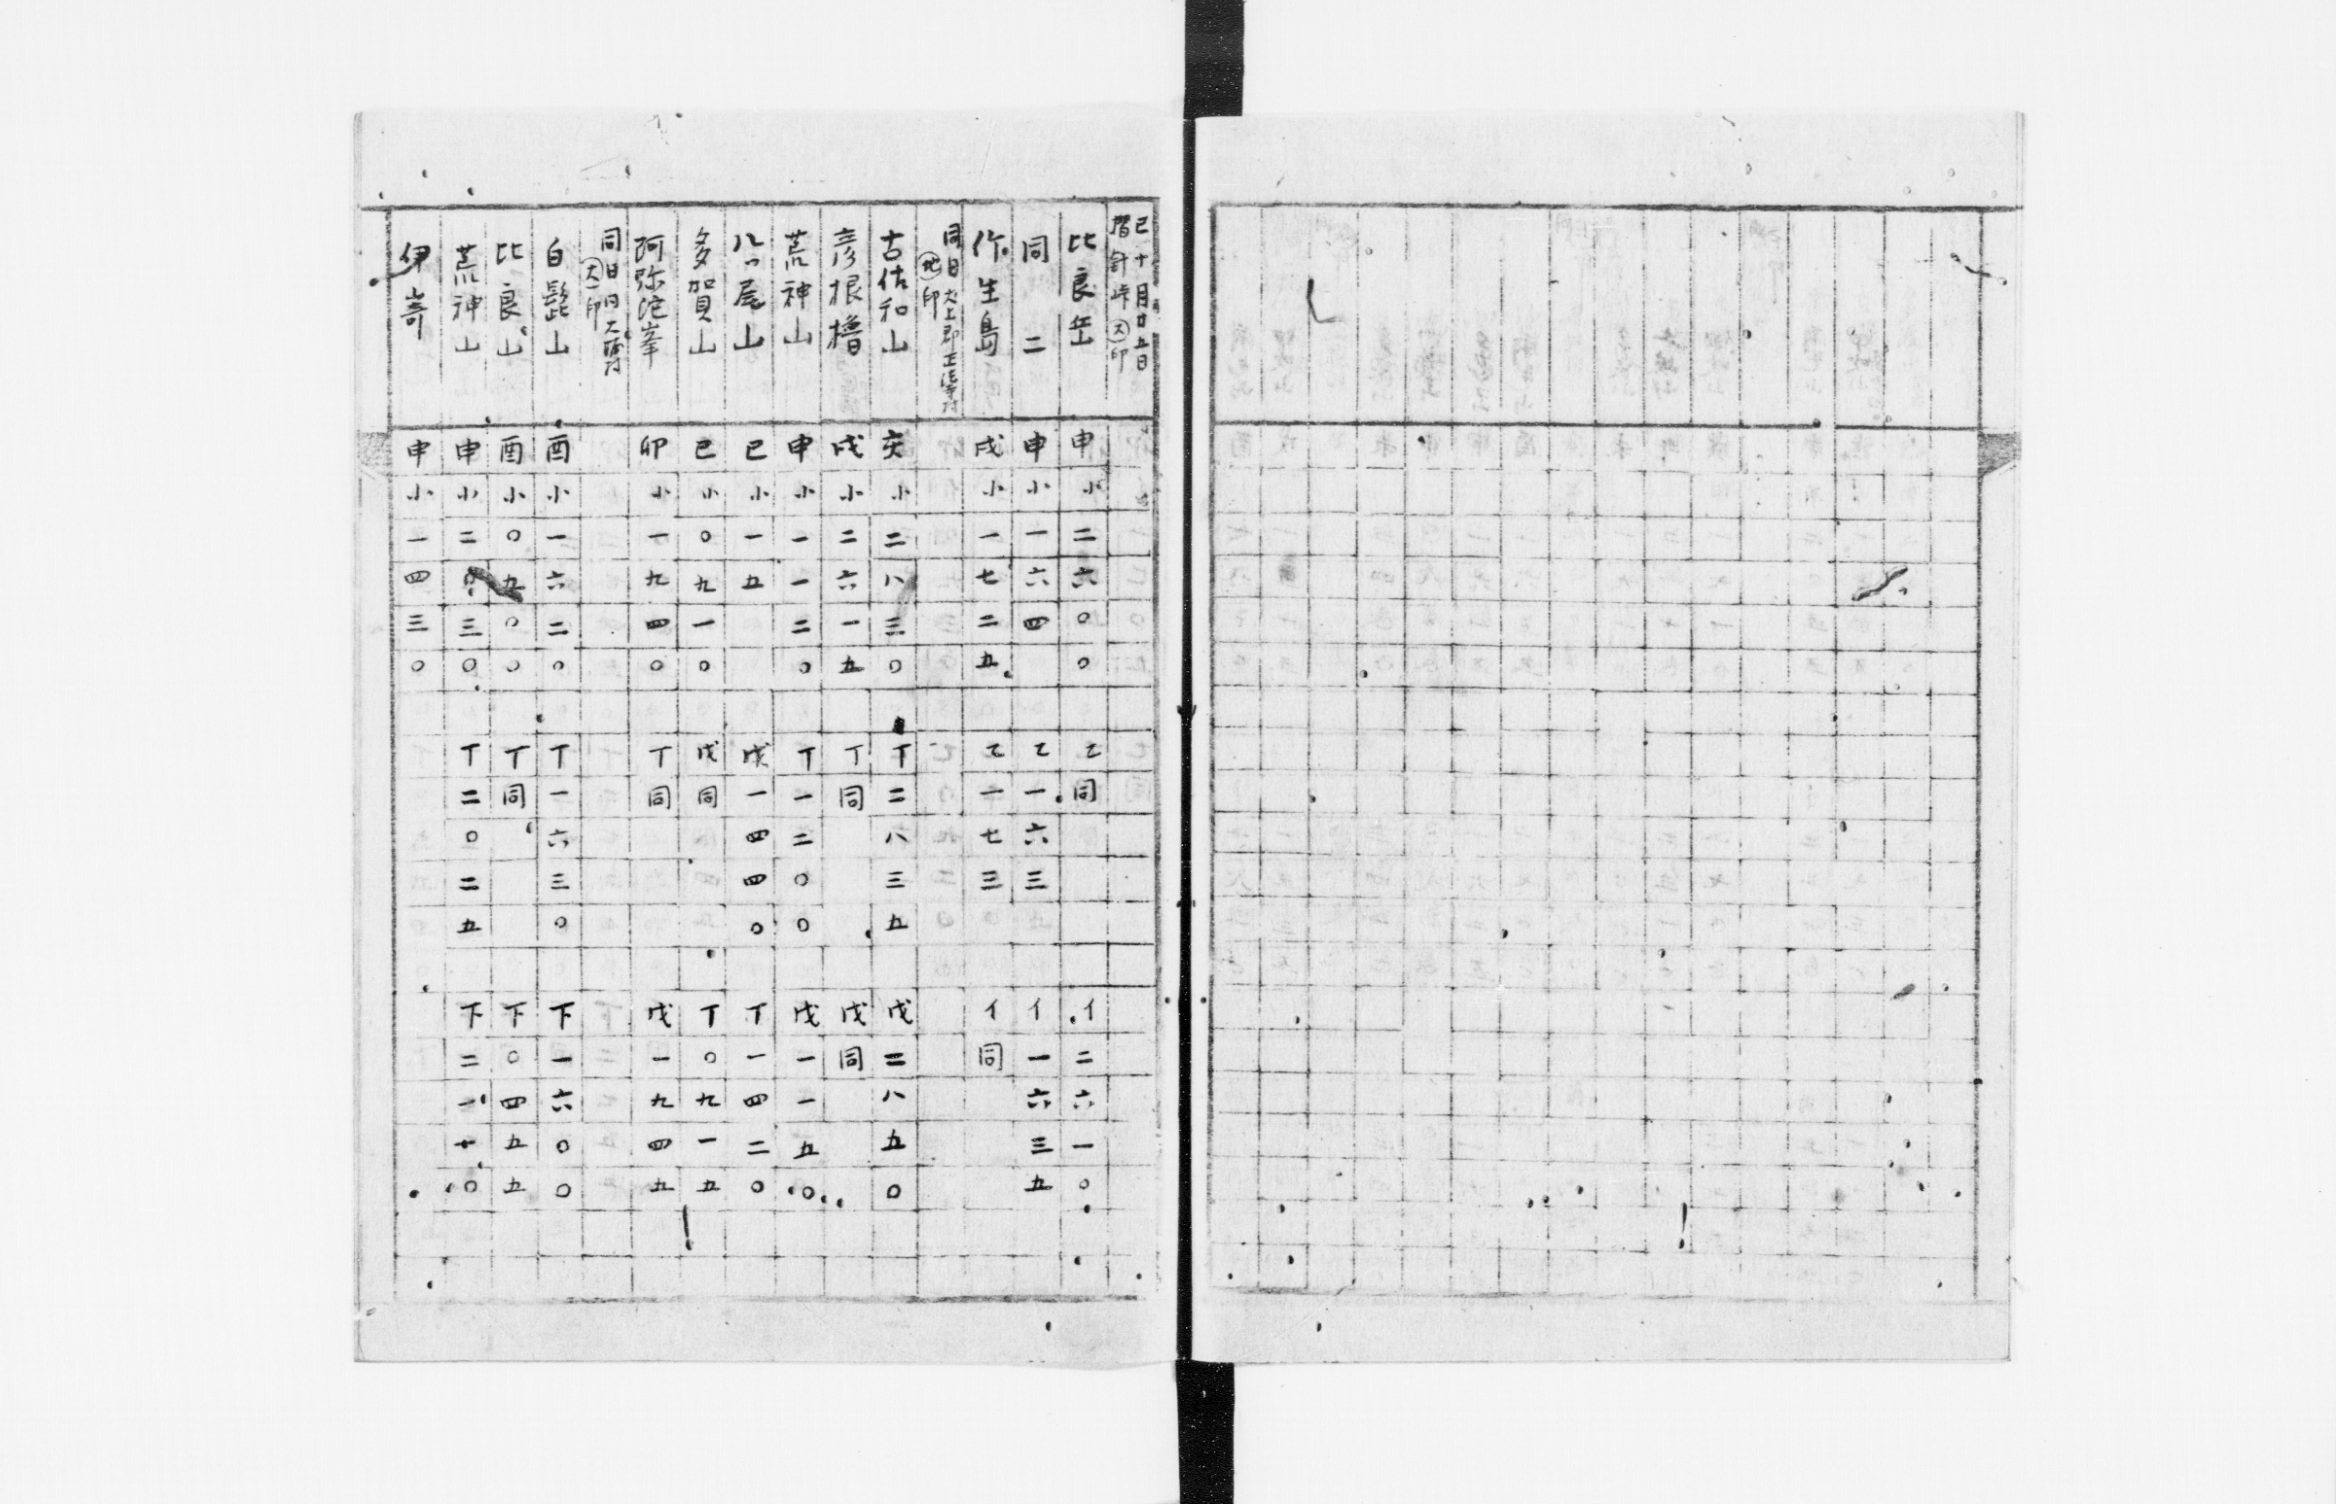 巳十月廿五日
摺針峠㊅印
比良岳 申小二六〇〇 乙同 イ二六一〇
同二 申小一六四 乙一六三 イ一六三五
竹生島 戌小一七二五 乙一七三 イ同
同日犬上郡正法寺村
㊉印
古佐和山 亥小二八三〇 丁二八三五 戊二八五〇
彦根櫓 戌小二六一五 丁同 戊同
荒神山 申小一一二〇 丁一二〇〇 戊一一五〇
八ツ尾山 巳小一五 戊一四四〇 丁一四二〇
多賀山 巳小〇九一〇 戊同 丁〇九一五
阿弥陀峯 卯小一九四〇 丁同 戊一九四五
同日同大堀村
印
白髭山 酉小一六二〇 丁一六三〇 下一六〇〇
比良山 酉小〇五〇〇 丁同 下〇四五五
荒神山 申小二〇三〇 丁二〇二五 下二一十〇
伊崎 申小一四三〇